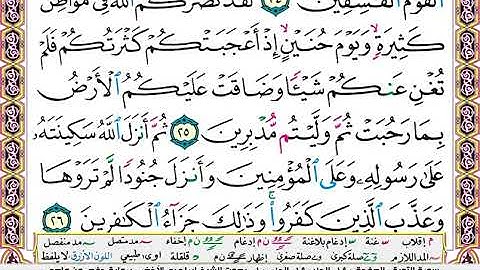 ٱلْقَوْمَ ٱلْفَٰسِقِينَ ٢٤ لَقَدْ نَصَرَكُمُ ٱللَّهُ فِى مَوَاطِنَ
كَثِيرَةٍۢ وَيَوْمَ حُنَيْنٍ إِذْ أَعْجَبَتْكُمْ كَثْرَتُكُمْ فَلَمْ
تُغْنِ عَنكُمْ شَيْـًٔا وَضَاقَتْ عَلَيْكُمُ ٱلْأَرْضُ
بِمَا رَحُبَتْ ثُمَّ وَلَّيْتُم مُّدْبِرِينَ ٢٥ ثُمَّ أَنزَلَ ٱللَّهُ سَكِينَتَهُۥ
عَلَىٰ رَسُولِهِۦ وَعَلَى ٱلْمُؤْمِنِينَ وَأَنزَلَ جُنُودًا لَّمْ تَرَوْهَا
وَعَذَّبَ ٱلَّذِينَ كَفَرُوا۟ ۚ وَذَٰلِكَ جَزَآءُ ٱلْكَٰفِرِينَ ٢٦
م إقلاب غنة إدغام بلاغنة إدغام إخفاء مد متصل مد منفصل
المد اللازم صلة كبرى صلة صغرى إظهار قلقلة أوى، طبيعي اللون الأزرق لا يلفظ